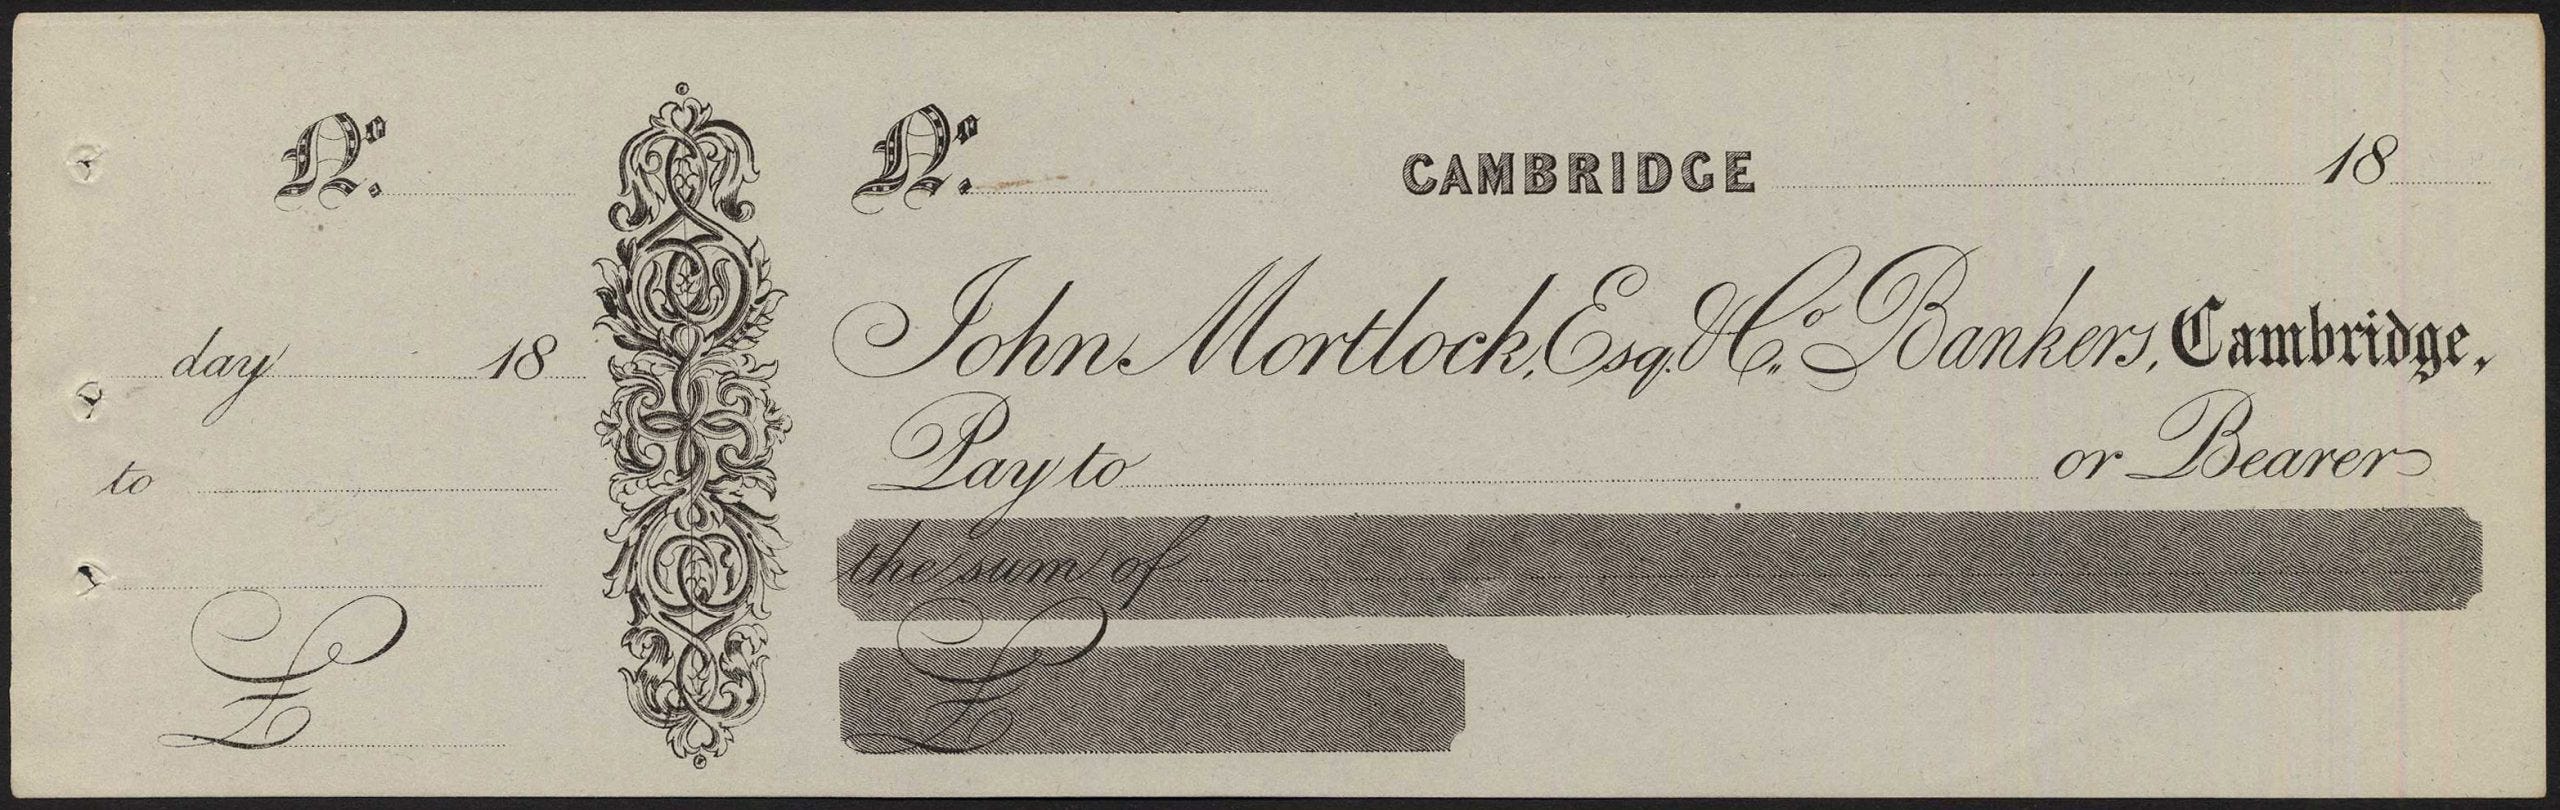 No.
day 18
to
£
No. CAMBRIDGE 18
John Mortlock, Esq. & Co. Bankers, Cambridge,
Pay to or Bearer
the sum of
£